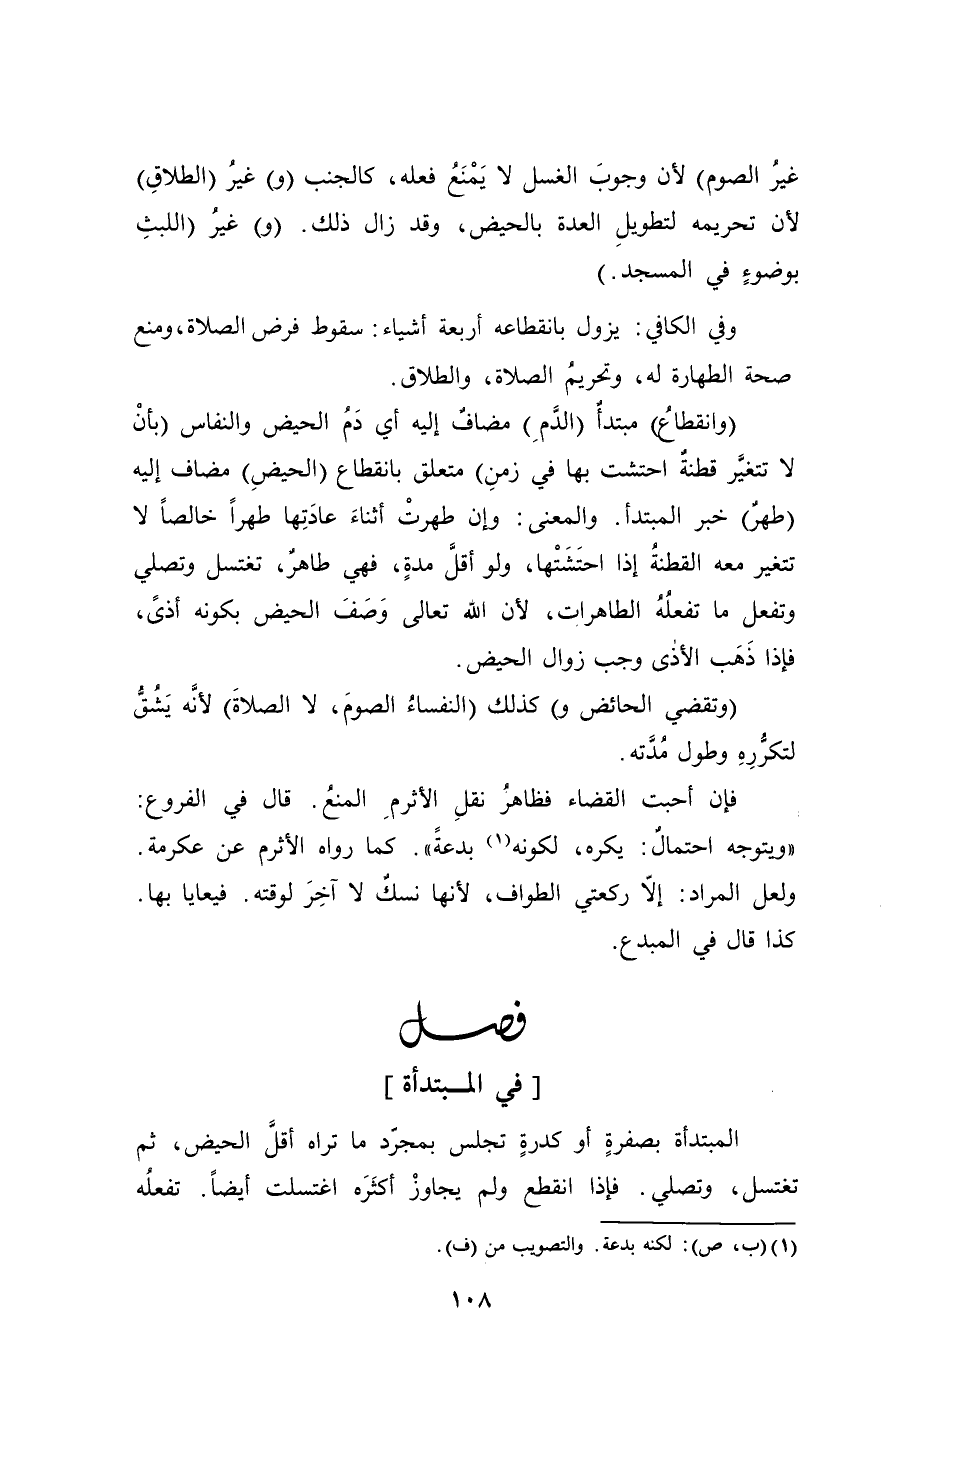 غيرُ الصوم) لأن وجوبَ الغسل لا يَمْنَعُ فعله، كالجنب (و) غيرُ (الطلاقِ)
لأن تحريمه لتطويلِ العدة بالحيض، وقد زال ذلك. (و) غيرُ (اللبثِ
بوضوءٍ في المسجد.)
وفي الكافي: يزول بانقطاعه أربعة أشياء: سقوط فرض الصلاة، ومنع
صحة الطهارة له، وتحريمُ الصلاة، والطلاق.
(وانقطاعُ) مبتدأٌ (الدَّمِ) مضافٌ إليه أي دَمُ الحيض والنفاس (بأنْ
لا تتغيَّر قطنةٌ احتشت بها في زمنِ) متعلق بانقطاع (الحيضِ) مضاف إليه
(طهرٌ) خبر المبتدأ. والمعنى: وإن طهرتْ أثناءَ عادَتِها طهراً خالصاً لا
تتغير معه القطنةُ إذا احتَشَتْها، ولو أقلَّ مدةٍ، فهي طاهرٌ، تغتسل وتصلي
وتفعل ما تفعلُهُ الطاهرات، لأن الله تعالى وَصَفَ الحيض بكونه أذىً،
فإذا ذَهَب الأذى وجب زوال الحيض.
(وتقضي الحائض و) كذلك (النفساءُ الصومَ، لا الصلاةَ) لأنَّه يَشُقُّ
لتكرُّرِهِ وطول مُدَّته.
فإن أحبت القضاء فظاهرُ نقلِ الأثرمِ المنعُ. قال في الفروع:
«ويتوجه احتمالٌ: يكره، لكونه(١) بدعةً». كما رواه الأثرم عن عكرمة.
ولعل المراد: إلّا ركعتي الطواف، لأنها نسكٌ لا آخِرَ لوقته. فيعايا بها.
كذا قال في المبدع.
فصل
[في المبتدأة]
المبتدأة بصفرةٍ أو كدرةٍ تجلس بمجرّد ما تراه أقلَّ الحيض، ثم
تغتسل، وتصلي. فإذا انقطع ولم يجاوزْ أكثَرَه اغتسلت أيضاً. تفعلُه
(١) (ب، ص): لكنه بدعة. والتصويب من (ف).
١٠٨